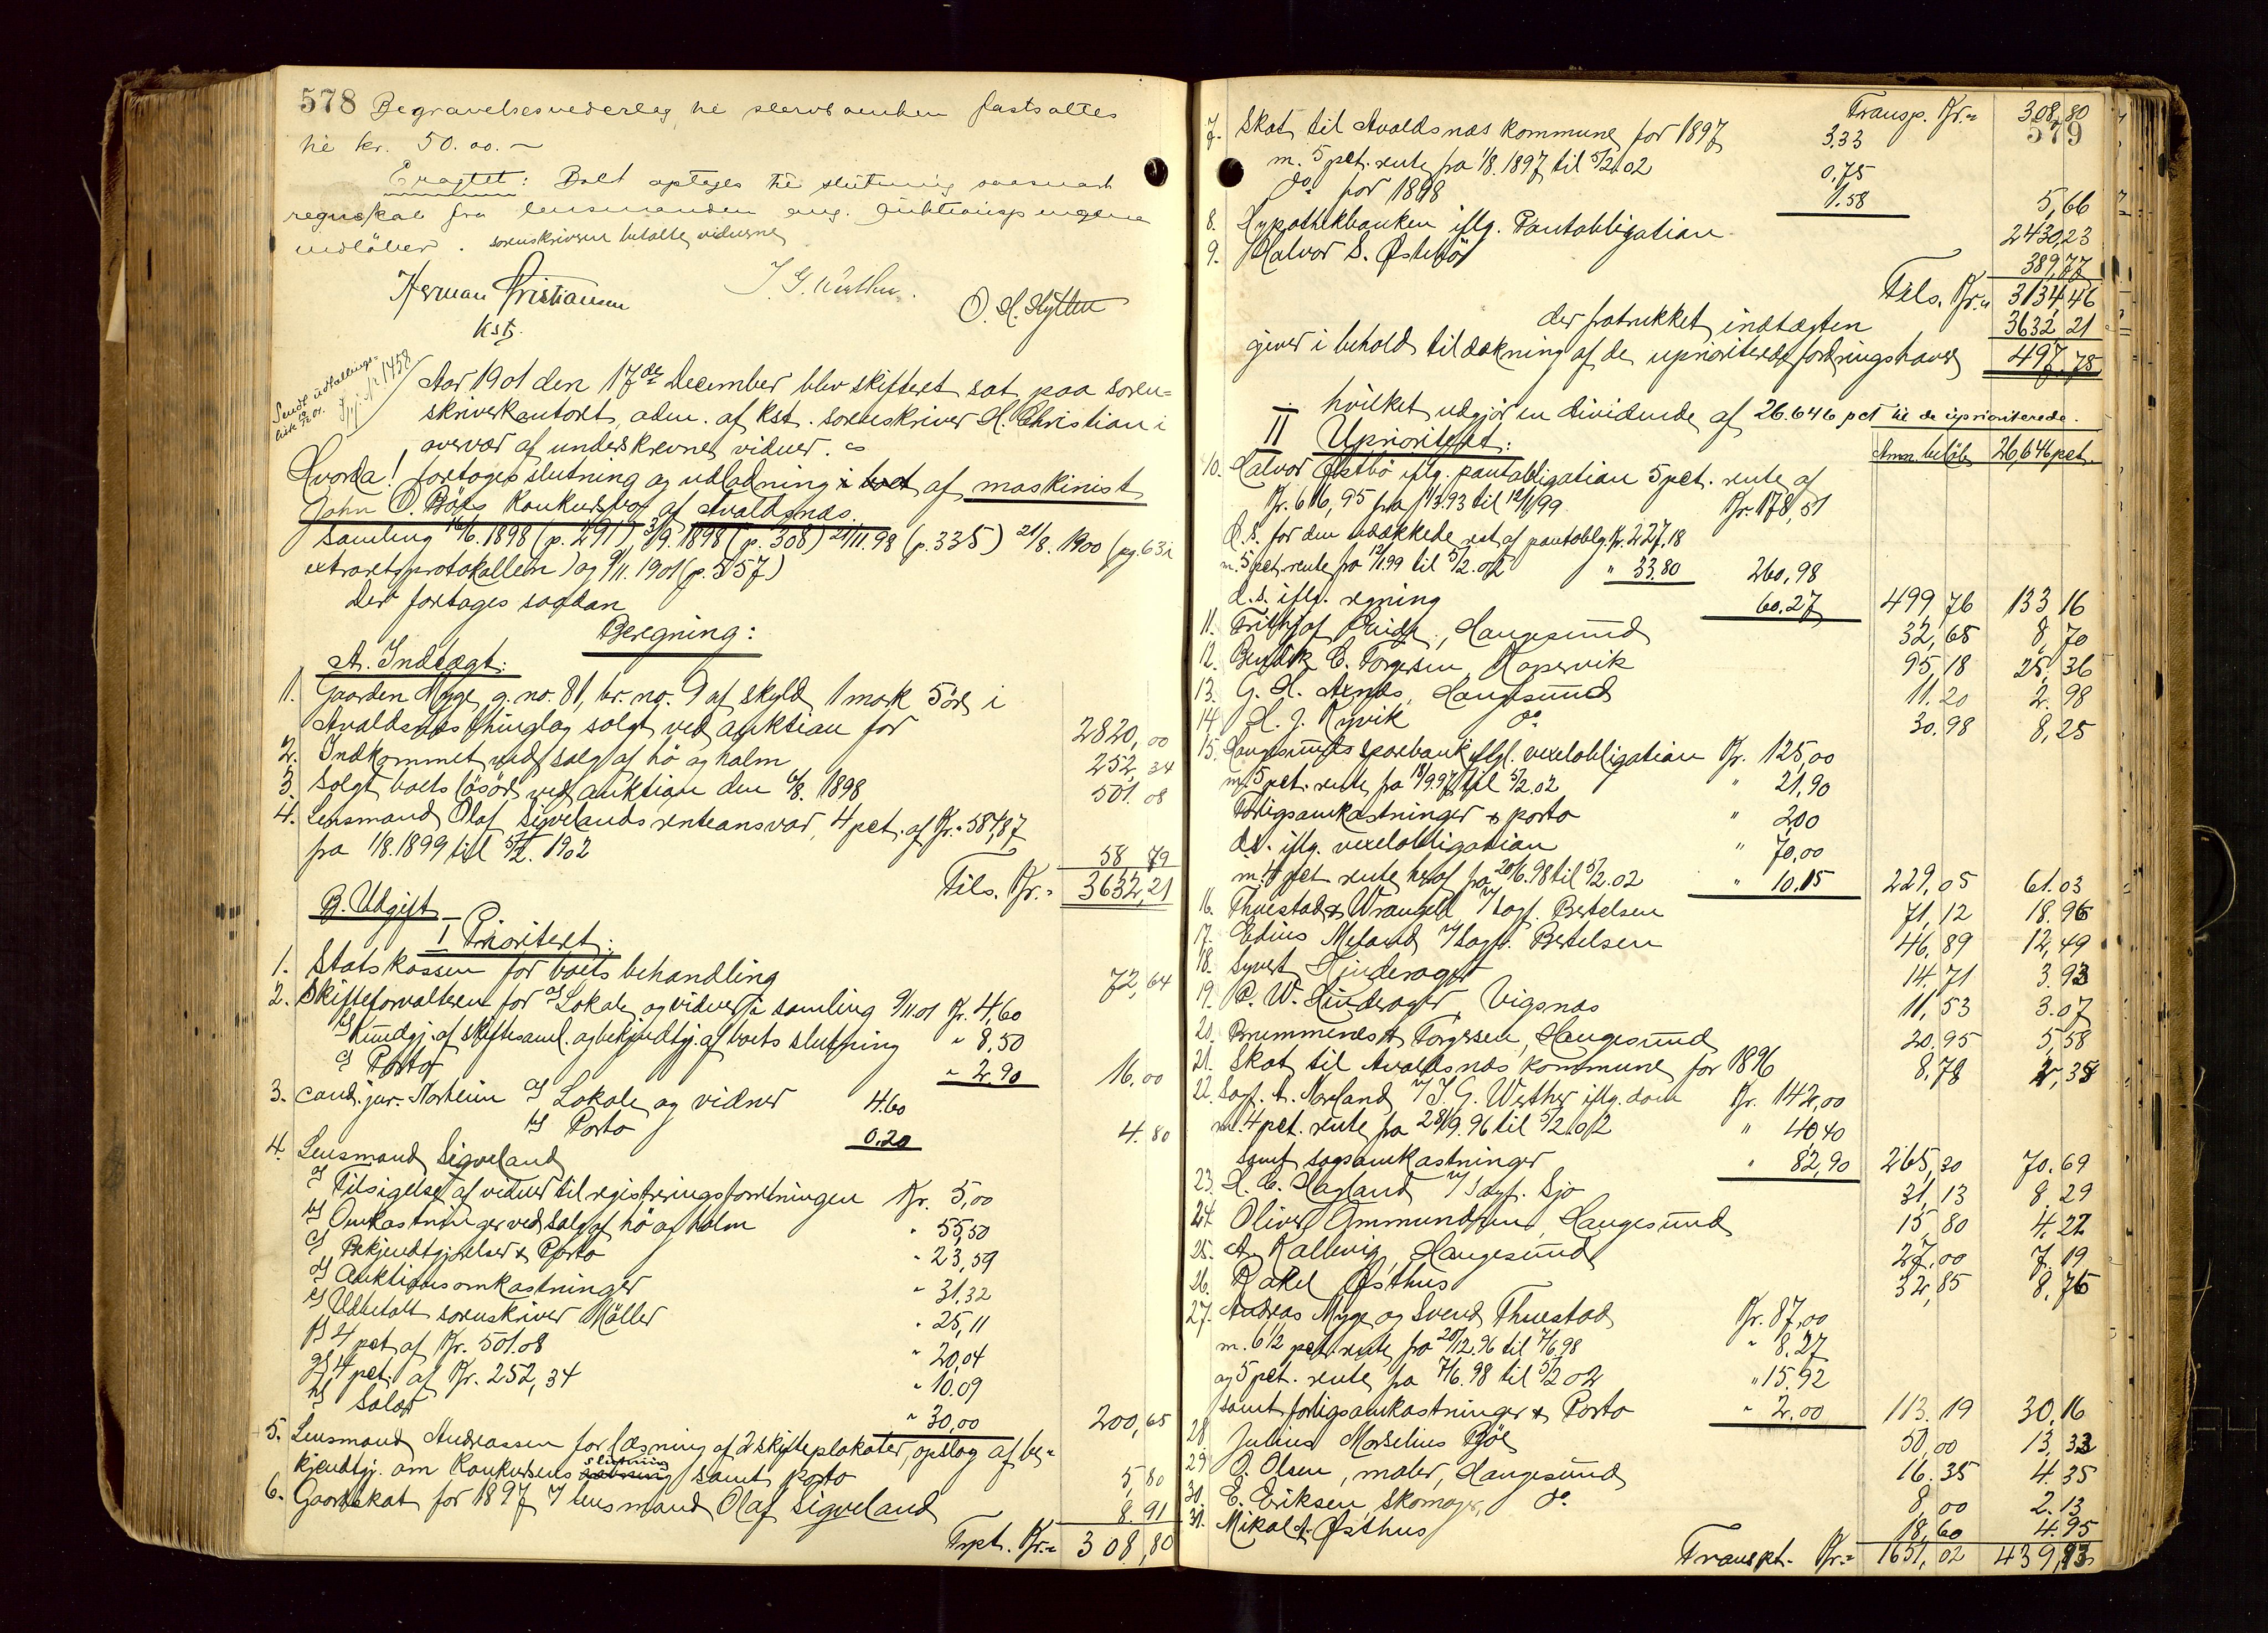 578 Begravelsesvederlag til stervboenken fastsattes
til kr. 50.00.-
Eragtet: Boet optages til slutning saasnart
regnskab fra lensmanden ang. auktionspengene
indløber. sorenskriveren betalte vidnerne
Herman Christiansen
kst.
O. H. Hytten
Sendt udlodnings-
Aar 1901 den 17de December blev skifteret sat paa soren-
skriverkontoret, adm. af kst. sorenskriver H. Christian i
overvær af underskrevne vidner.
Hvorda! foretoges slutning og udlodning i boet af maskinist
John O. Böes Konkursbo af Avaldsnæs.
Samling 16/6. 1898 (p. 291) 3/9. 1898 (p. 308) 21/11.98 (p. 335) 21/8. 1900 (pg. 63 i
extraretsprotokollen) og 9/11. 1901 (p. 557)
Der foretages saadan
Beregning:
A. Indtægt:
1. Gaarden Myge, g. no. 81, br. no. 9 af skyld 1 mark 5 öre i
Avaldsnæs thinglag solgt ved auktion for 2820,00
2. Indkommet ved salg af hö og halm 252,34
3. Solgt boets lösöre ved auktion den 6/8. 1898 501.08
4. Lensmand Olaf Sigvelands renteansvar, 4 pct. af Kr. 584,87
fra 1/8. 1899 til 5/2. 1902 58 79
Tils. Kr. = 3632,21
B. Udgift
I Prioriteret:
1. Statskassen for boets behandling 72,64
2. Skifteforvalteren for a) Lokale og vidner i samling 9/11.01 Kr. 4,60
b) Kundgj. af skiftesaml. og bekjendtgj. af boets slutning " 8,50
c) Porto " 2.90 16,00
3. cand. jur. Norheim a) Lokale og vidner 4.60
b) Porto 0.20 4.80
4. Lensmand Sigveland
a) Tilsigelse af vidner til registreringsforretningen Kr. 5,00
b) Omkostninger ved salg af hö og halm " 55,50
c) Bekjendtgjörelser & Porto " 23,59
d) Auktionsomkostninger " 31,32
e) Udbetalt sorenskriver Möller " 25,11
f) 4 pct. af Kr. 501.08 " 20,04
g) 4 pct. af Kr. 252,34 " 10.09
h) Salær " 30,00 200,65
5. Lensmand Andreassen for læsning af 2 skifteplakater, opslag af be-
kjendtgj. om Konkursens slutning samt porto 5,80
6. Gaardskat for 1897 v/ lensmand Olaf Sigveland 8.91
Trpt. Kr. = 308,80
579
Transp. Kr. = 308,80
7. Skat til Avaldsnæs kommune for 1897 3.33
m. 5 pct. rente fra 1/8. 1897 til 5/2.02 0,75
do for 1898 1.58 5,66
8. Hypothekbanken iflg. Pantobligation 2430,23
9. Halvor S. Östebö 389,77
Tils. Kr. = 3134,46
der fratrukket indtægten 3632 21
giver i behold til dækning af de uprioriterede fordringshavere 497.75
hvilket udgjör en dividende af 26.646 pct til de uprioriterede.
II Uprioriteret:
Anm. belöb 26,646 pct.
10. Halvor Östebö iflg. pantobligation 5 pct. rente af
Kr. 616,95 fra 1/3.93 til 12/11.99 Kr. 178,51
d.s. for den udækkede rest af pantoblg. Kr. 227.18
m. 5 pct. rente fra 12/11.99 til 5/2.02 " 33.80 260,98
d.s. iflg. regning 60.27 499,76 133 16
11. Frithjof Eride, Haugesund 32,65 8,70
12. Bendik C. Torgersen, Kopervik 95,18 25,36
13. G. H. Axnæs, Haugesund 11.20 2.98
14. H. J. Ryvik do 30.98 8,25
15. Haugesunds sparebank iflgl. vexelobligation Kr. 125,00
m. 5 pct. rente fra 18/9.97 til 5/2.02 " 21,90
Forligsomkostninger & porto " 2,00
ds. iflg. vexelobligation " 70,00
m. 4 pct rente heraf fra 20/6.98 til 5/2.02 " 10.15 229,05 61.03
16. Thuestad & Wrangell v/ Sagf. Bertelsen 71,12 18.96
17. Edius Meland v/ Sagf. Bertelsen 46,89 12,49
18. Syvert Hinderager 14.71 3.93
19. P. W. Hinderager, Vigsnæs 11,53 3.07
20. Brummenæs & Torgersen, Haugesund 20.95 5,58
21. Skat til Avaldsnæs kommune for 1896 8,78 2,35
22. Sagf. A. Noreland v/ I. G. Westher iflg. dom Kr. 142,00
m. 4 pct. rente fra 28/9.96 til 5/2.02 " 40,40
samt sagsomkostninger " 82,90 265,30 70.69
23. H. C. Hagland v/ Sagf. Sjo 31,13 8,29
24. Oliver Ommundsen, Haugesund 15,80 4,22
25. A. Kallevig, Haugesund 27,00 7.19
26. Rakel Östhus 32,85 8,75
27. Andreas Myge og Svend Thuestad Kr. 87,00
m. 6 1/2 pct. rente fra 20/12.96 til 7/6.98 " 8.27
og 5 pct. rente fra 7/6.98 til 5/2 02 " 15.92
samt forligsomkostninger & Porto " 2,00 113.19 30,16
28. Julius Marselius Böe 50,00 13,33
29. O. Olsen, maler, Haugesund 16.35 4.35
30. E. Eriksen, skomager, do. 8,00 2.13
31. Mikal A. Östhus 18,60 4.95
Transpt. Kr. = 1651,02 439,93